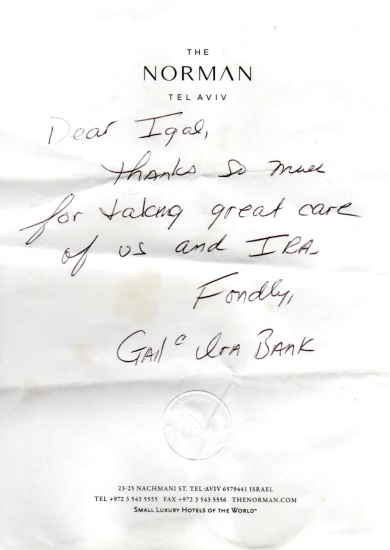 THE
NORMAN
TEL AVIV
Dear Igal,
thanks so much
for taking great care
of us and IRA.
Fondly,
Gail & Ira Bank
23-25 NACHMANI ST. TEL-AVIV 6579441 ISRAEL
TEL +972 3 543 5555 FAX +972 3 543 5556 THENORMAN.COM
SMALL LUXURY HOTELS OF THE WORLD™